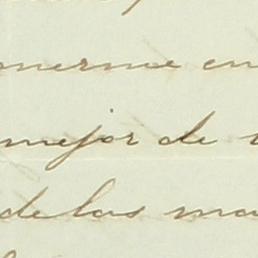 nerme en
mejor de
de las ma